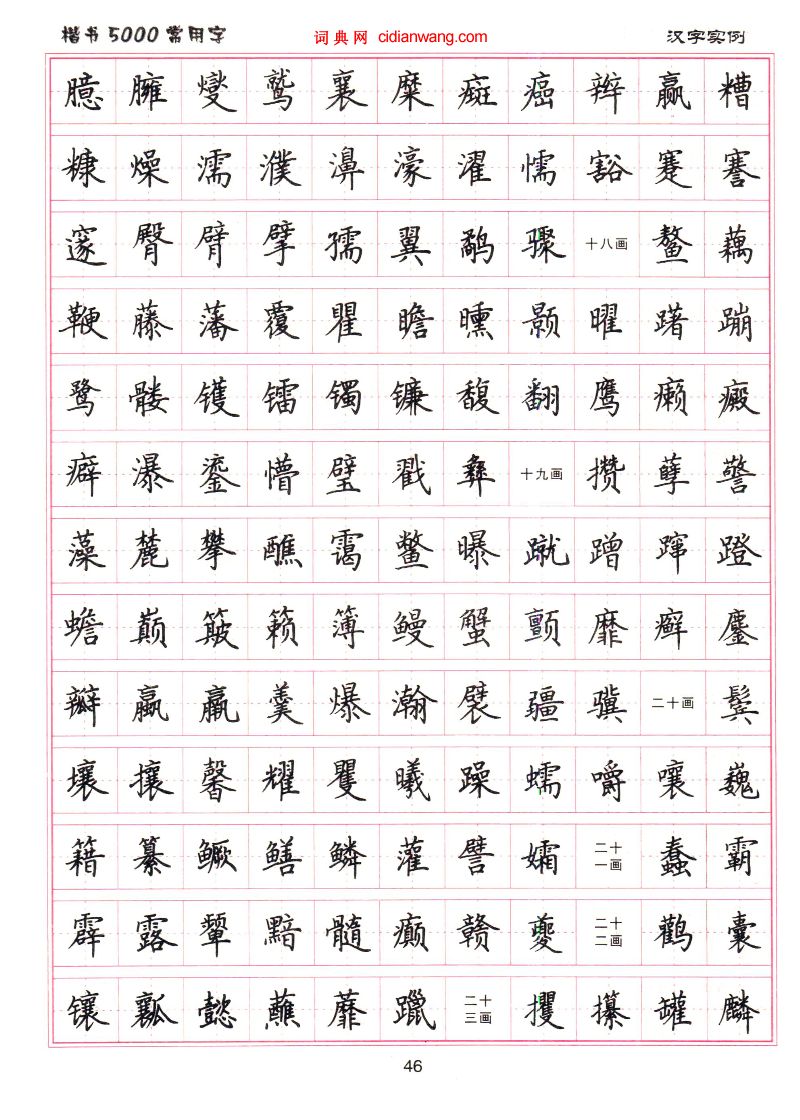 楷书5000常用字 词典网 cidianwang.com 汉字实例
臆 臃 燮 鹫 襄 糜 癍 癌 辫 赢 糟
糠 燥 濡 濮 濞 濠 濯 懦 豁 蹇 謇
邃 臀 臂 擘 孺 翼 鹬 骤 十八画 鳌 藕
鞭 藤 藩 覆 瞿 瞻 曛 颢 曜 躇 蹦
鹭 髅 镬 镭 镯 镰 馥 翻 鹰 癞 癜
癖 瀑 鎏 懵 璧 戳 彝 十九画 攒 孽 警
藻 麓 攀 醮 霭 鳖 曝 蹴 蹭 蹿 蹬
蟾 巅 簸 籁 簿 鳗 蟹 颤 靡 癣 鏖
瓣 蠃 羸 羹 爆 瀚 襞 疆 骥 二十画 鬓
壤 攘 馨 耀 矍 曦 躁 蠕 嚼 嚷 巍
籍 纂 鳜 鳝 鳞 灌 譬 孀 二十一画 蠢 霸
霹 露 颦 黯 髓 癫 赣 夔 二十二画 鹳 囊
镶 瓤 懿 蘸 蘼 躐 二十三画 攫 攥 罐 麟
46